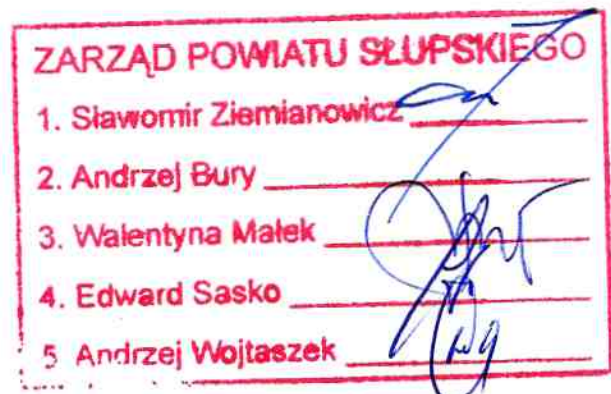 ZARZĄD POWIATU SŁUPSKIEGO
1. Sławomir Ziemianowicz
2. Andrzej Bury
3. Walentyna Małek
4. Edward Sasko
5 Andrzej Wojtaszek